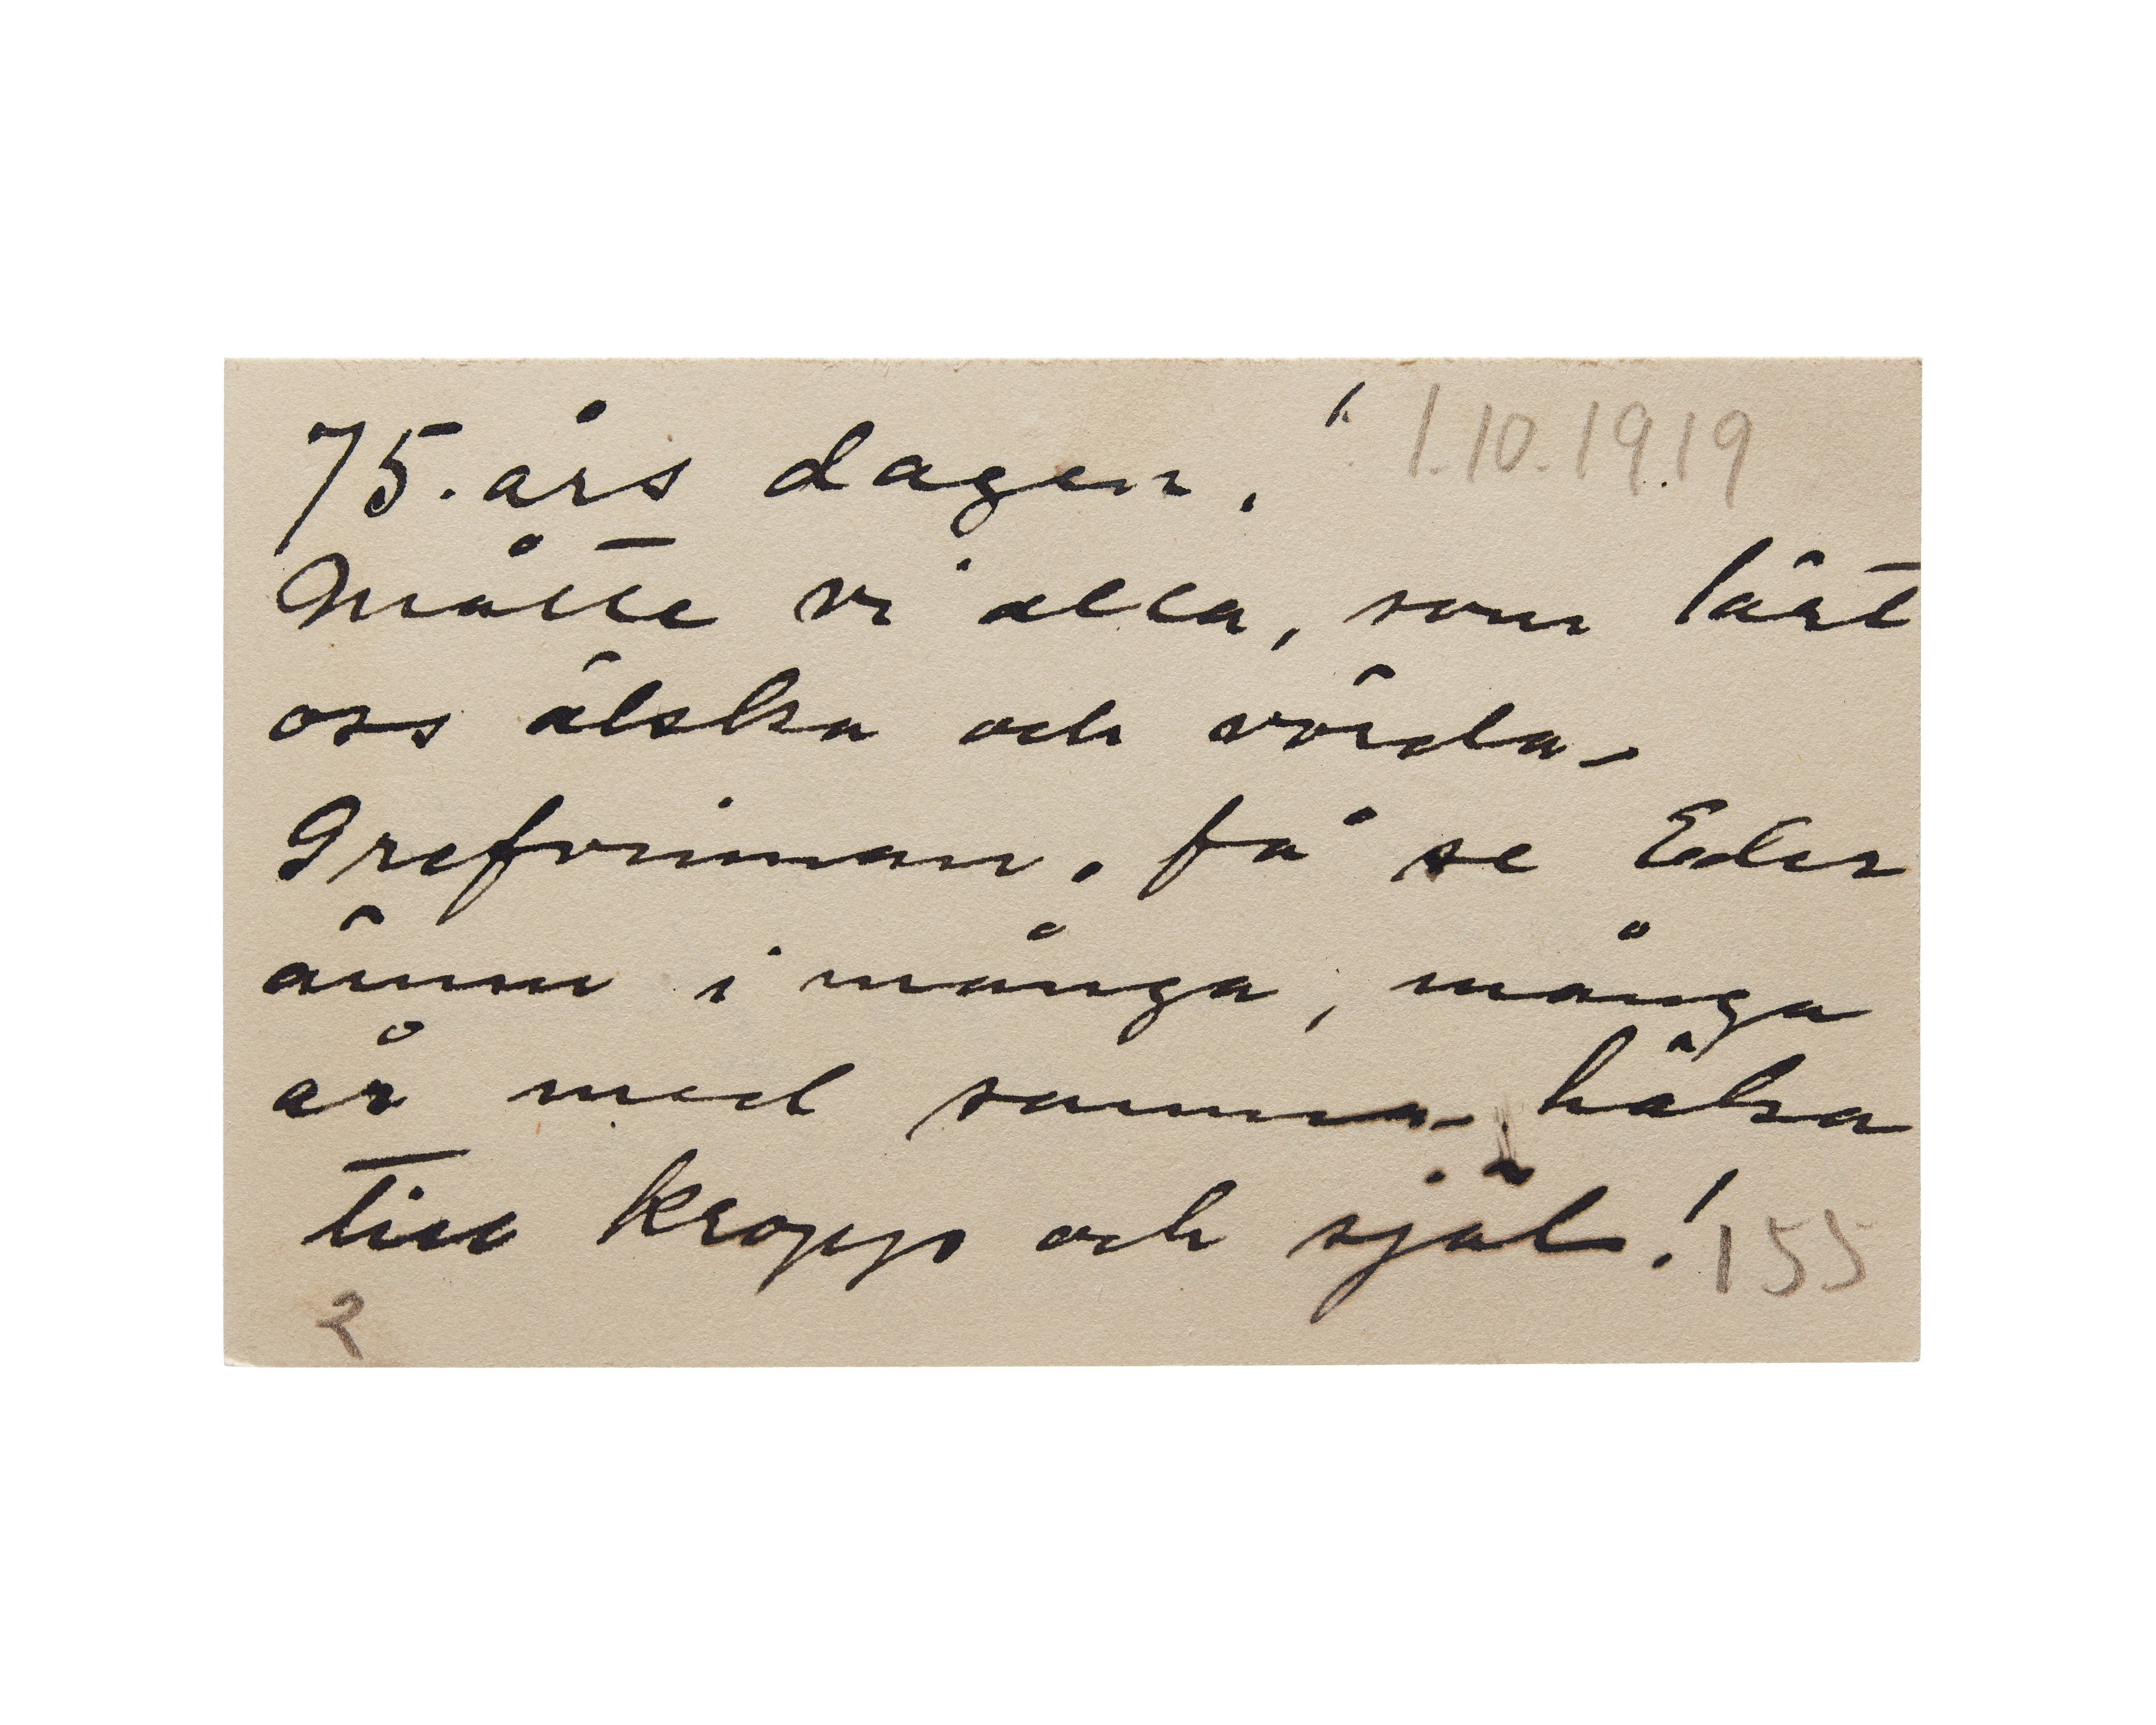 75. års dagen. 1.10.1919
Måtte vi alla, som lärt
oss älska och vörda
Grefvinnan, få se Eder
ännu i många, många
år med samma hälsa
till kropp och själ! 155
2